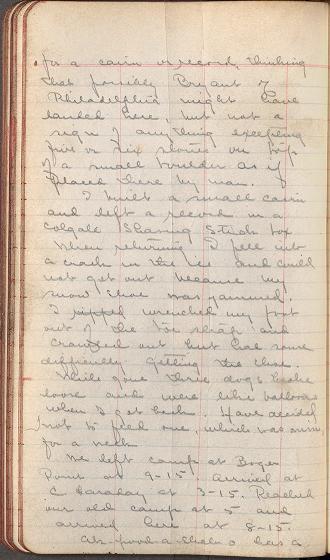 for a cairn or record, thinking
that possibly Bryant of
Philadelphia might have
landed here, but not a
sign of anything excepting
five or six stones on top
of a small boulder as if
placed there by man.
I built a small cairn
and left a record in a
Colgate Shaving Stick box
When returning I fell into
a crack in the ice and could
not get out because my
snow shoe was jammed.
I wrenched my foot
out of the toe strap and
crawled out but had some
difficulty getting the shoe.
While gone three dogs broke
loose and were like balloons
when I got back. Have decided
not to feed one, which was mine
for a week
We left camp at
Point at 9-15. Arrived at
C Faraday at 3-15. Reached
our old camp at 5 and
arrived here at 8-15.
has a